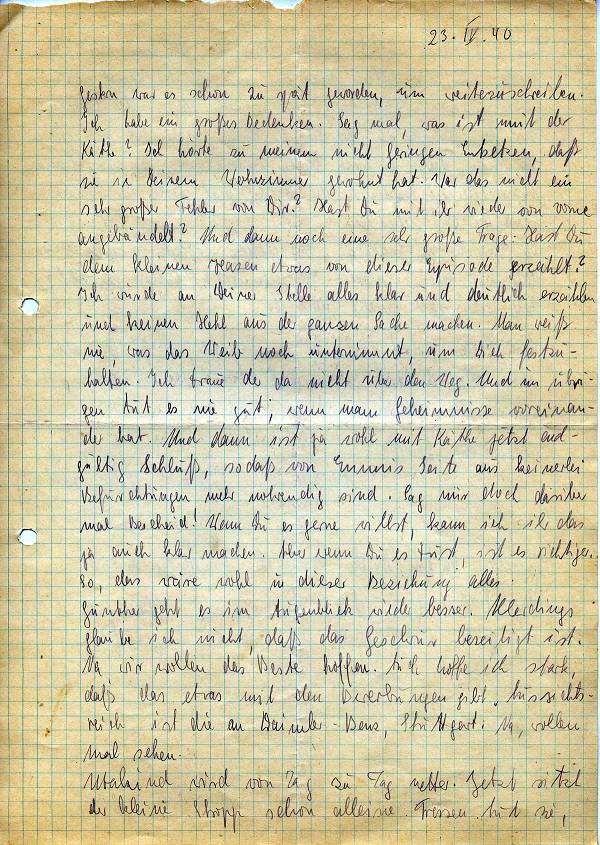 23. IV. 40
Gestern war es schon zu spät geworden, um weiterzuschreiben.
Ich habe ein großes Bedenken. Sag mal, was ist mit der
Käthe? Ich hörte zu meinem nicht geringen Entsetzen, daß
sie in Deinem Wohnzimmer gewohnt hat. War das nicht ein
sehr großer Fehler von Dir? Hast Du mit ihr wieder von vorne
angebändelt? Und dann noch eine sehr große Frage: Hast Du
dem kleinen Hasen etwas von dieser Episode erzählt?
Ich würde an Deiner Stelle alles klar und deutlich erzählen
und keinen Hehl aus der ganzen Sache machen. Man weiß
nie, was das Weib noch unternimmt, um Dich festzu-
halten. Ich traue der da nicht über den Weg. Und im übri-
gen tut es nie gut, wenn man Geheimnisse voreinan-
der hat. Und dann ist ja wohl mit Käthe jetzt end-
gültig Schluß, sodaß von Emmis Seite aus keinerlei
Befürchtungen mehr notwendig sind. Sag mir doch darüber
mal Bescheid! Wenn Du es gerne willst, kann ich ihr das
ja auch klar machen. Aber wenn Du es tust, ist es richtiger.
So, das wäre wohl in dieser Beziehung alles.
Günther geht es im Augenblick wieder besser. Allerdings
glaube ich nicht, daß das Geschwür beseitigt ist.
Na wir wollen das Beste hoffen. Auch hoffe ich stark,
daß das etwas mit den Bewerbungen gibt. Aussichts-
reich ist die an Daimler-Benz, Stuttgart. Na, wollen
mal sehen.
wird von Tag zu Tag netter. Jetzt sitzt
der kleine schon alleine. Fressen tut sie,